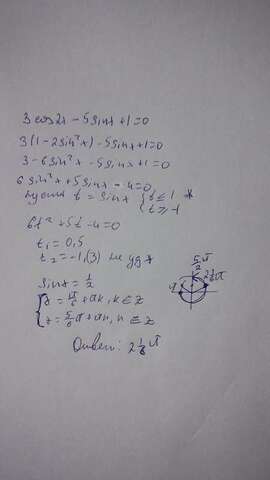 3 cos2x - 5 sinx + 1 = 0
3(1 - 2sin²x) - 5sinx + 1 = 0
3 - 6sin²x - 5sinx + 1 = 0
6 sin²x + 5sinx - 4 = 0
Пусть t = sinx { t ≤ 1 *
t ≥ -1
6t² + 5t - 4 = 0
t₁ = 0,5
t₂ = -1,(3) не уд *
sinx = 1/2
{ x = π/6 + πk, k ∈ Z
x = 5/6 π + πn, n ∈ Z
5/2 π
2 1/6 π
Ответ: 2 1/6 π